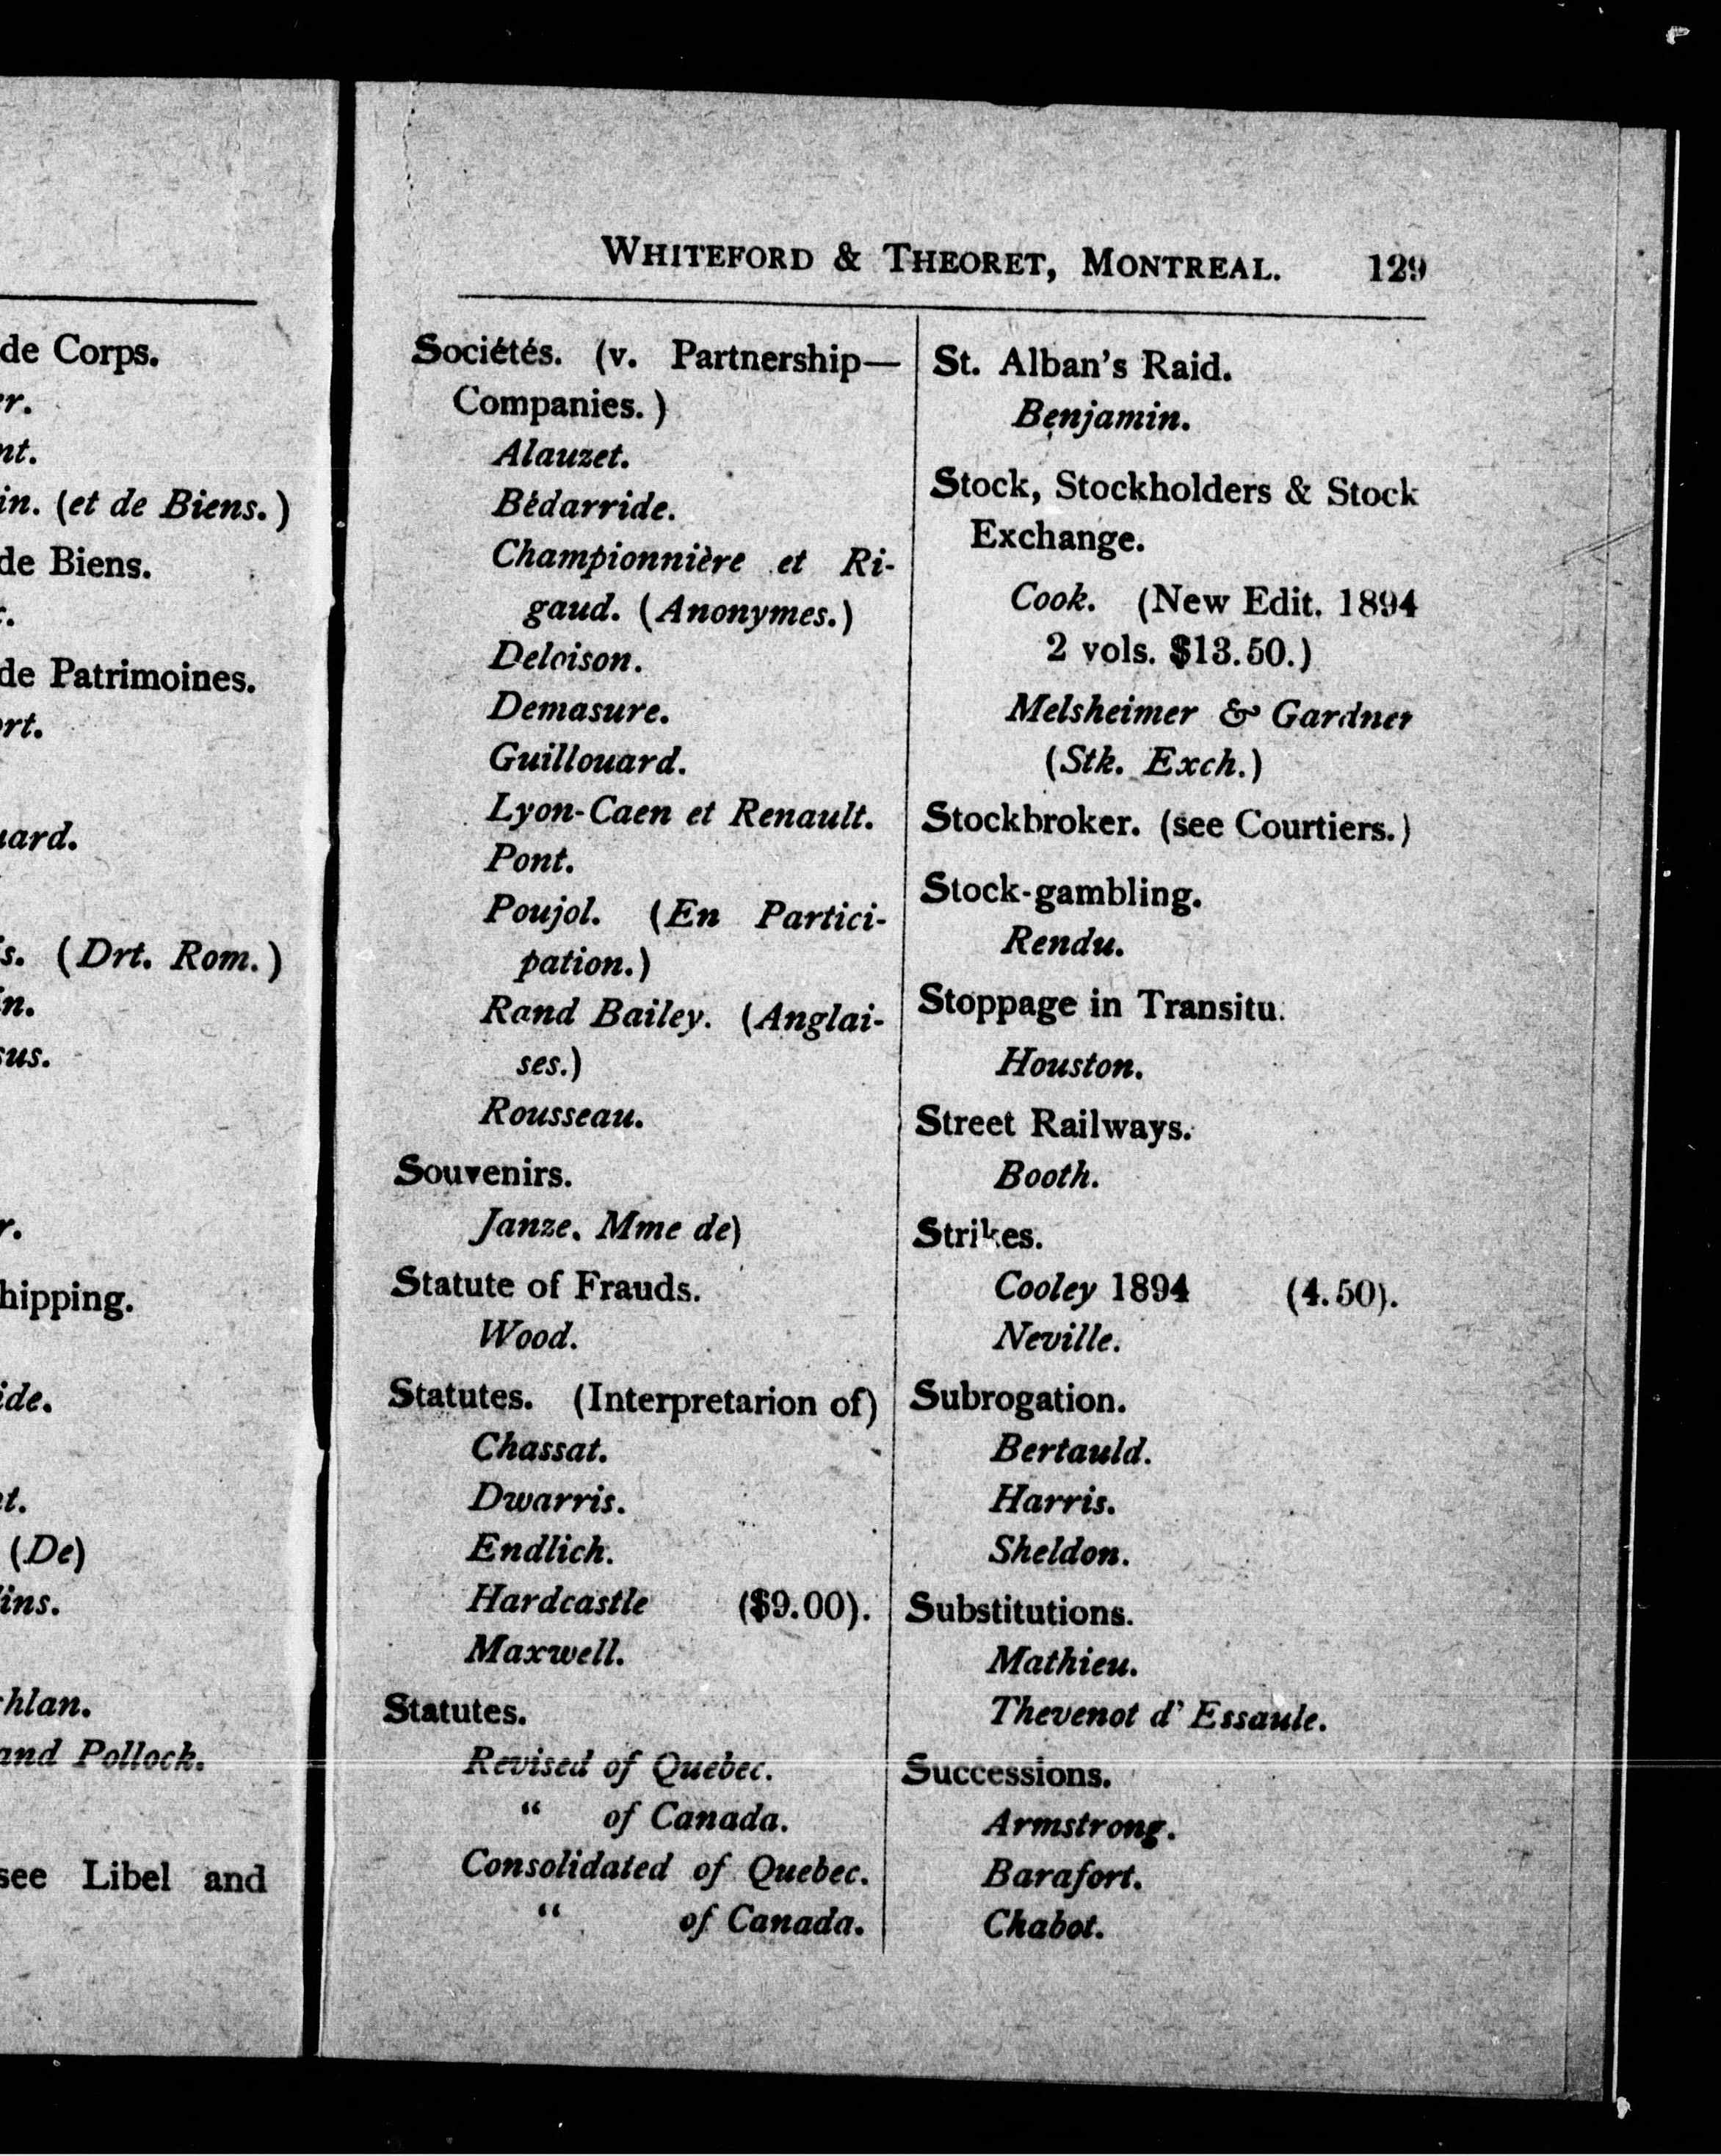 de Corps.
in. (et de Biens.)
de Biens.
de Patrimoines.
s. (Drt. Rom.)
hipping.
(De)
and Pollock.
see Libel and
WHITEFORD & THEORET, MONTREAL. 129
Sociétés. (v. Partnership—
Companies.)
Alauzet.
Bédarride.
Championnière et Ri-
gaud. (Anonymes.)
Deloison.
Demasure.
Guillouard.
Lyon-Caen et Renault.
Pont.
Poujol. (En Partici-
pation.)
Rand Bailey. (Anglai-
ses.)
Rousseau.
Souvenirs.
Janze. Mme de)
Statute of Frauds.
Wood.
Statutes. (Interpretarion of)
Chassat.
Dwarris.
Endlich.
Hardcastle ($9.00).
Maxwell.
Statutes.
Revised of Quebec.
“ of Canada.
Consolidated of Quebec.
“ of Canada.
St. Alban's Raid.
Benjamin.
Stock, Stockholders & Stock
Exchange.
Cook. (New Edit. 1894
2 vols. $13.50.)
Melsheimer & Gardner
(Stk. Exch.)
Stockbroker. (see Courtiers.)
Stock-gambling.
Rendu.
Stoppage in Transitu.
Houston.
Street Railways.
Booth.
Strikes.
Cooley 1894 (4.50).
Neville.
Subrogation.
Bertauld.
Harris.
Sheldon.
Substitutions.
Mathieu.
Thevenot d' Essaule.
Successions.
Armstrong.
Barafort.
Chabot.